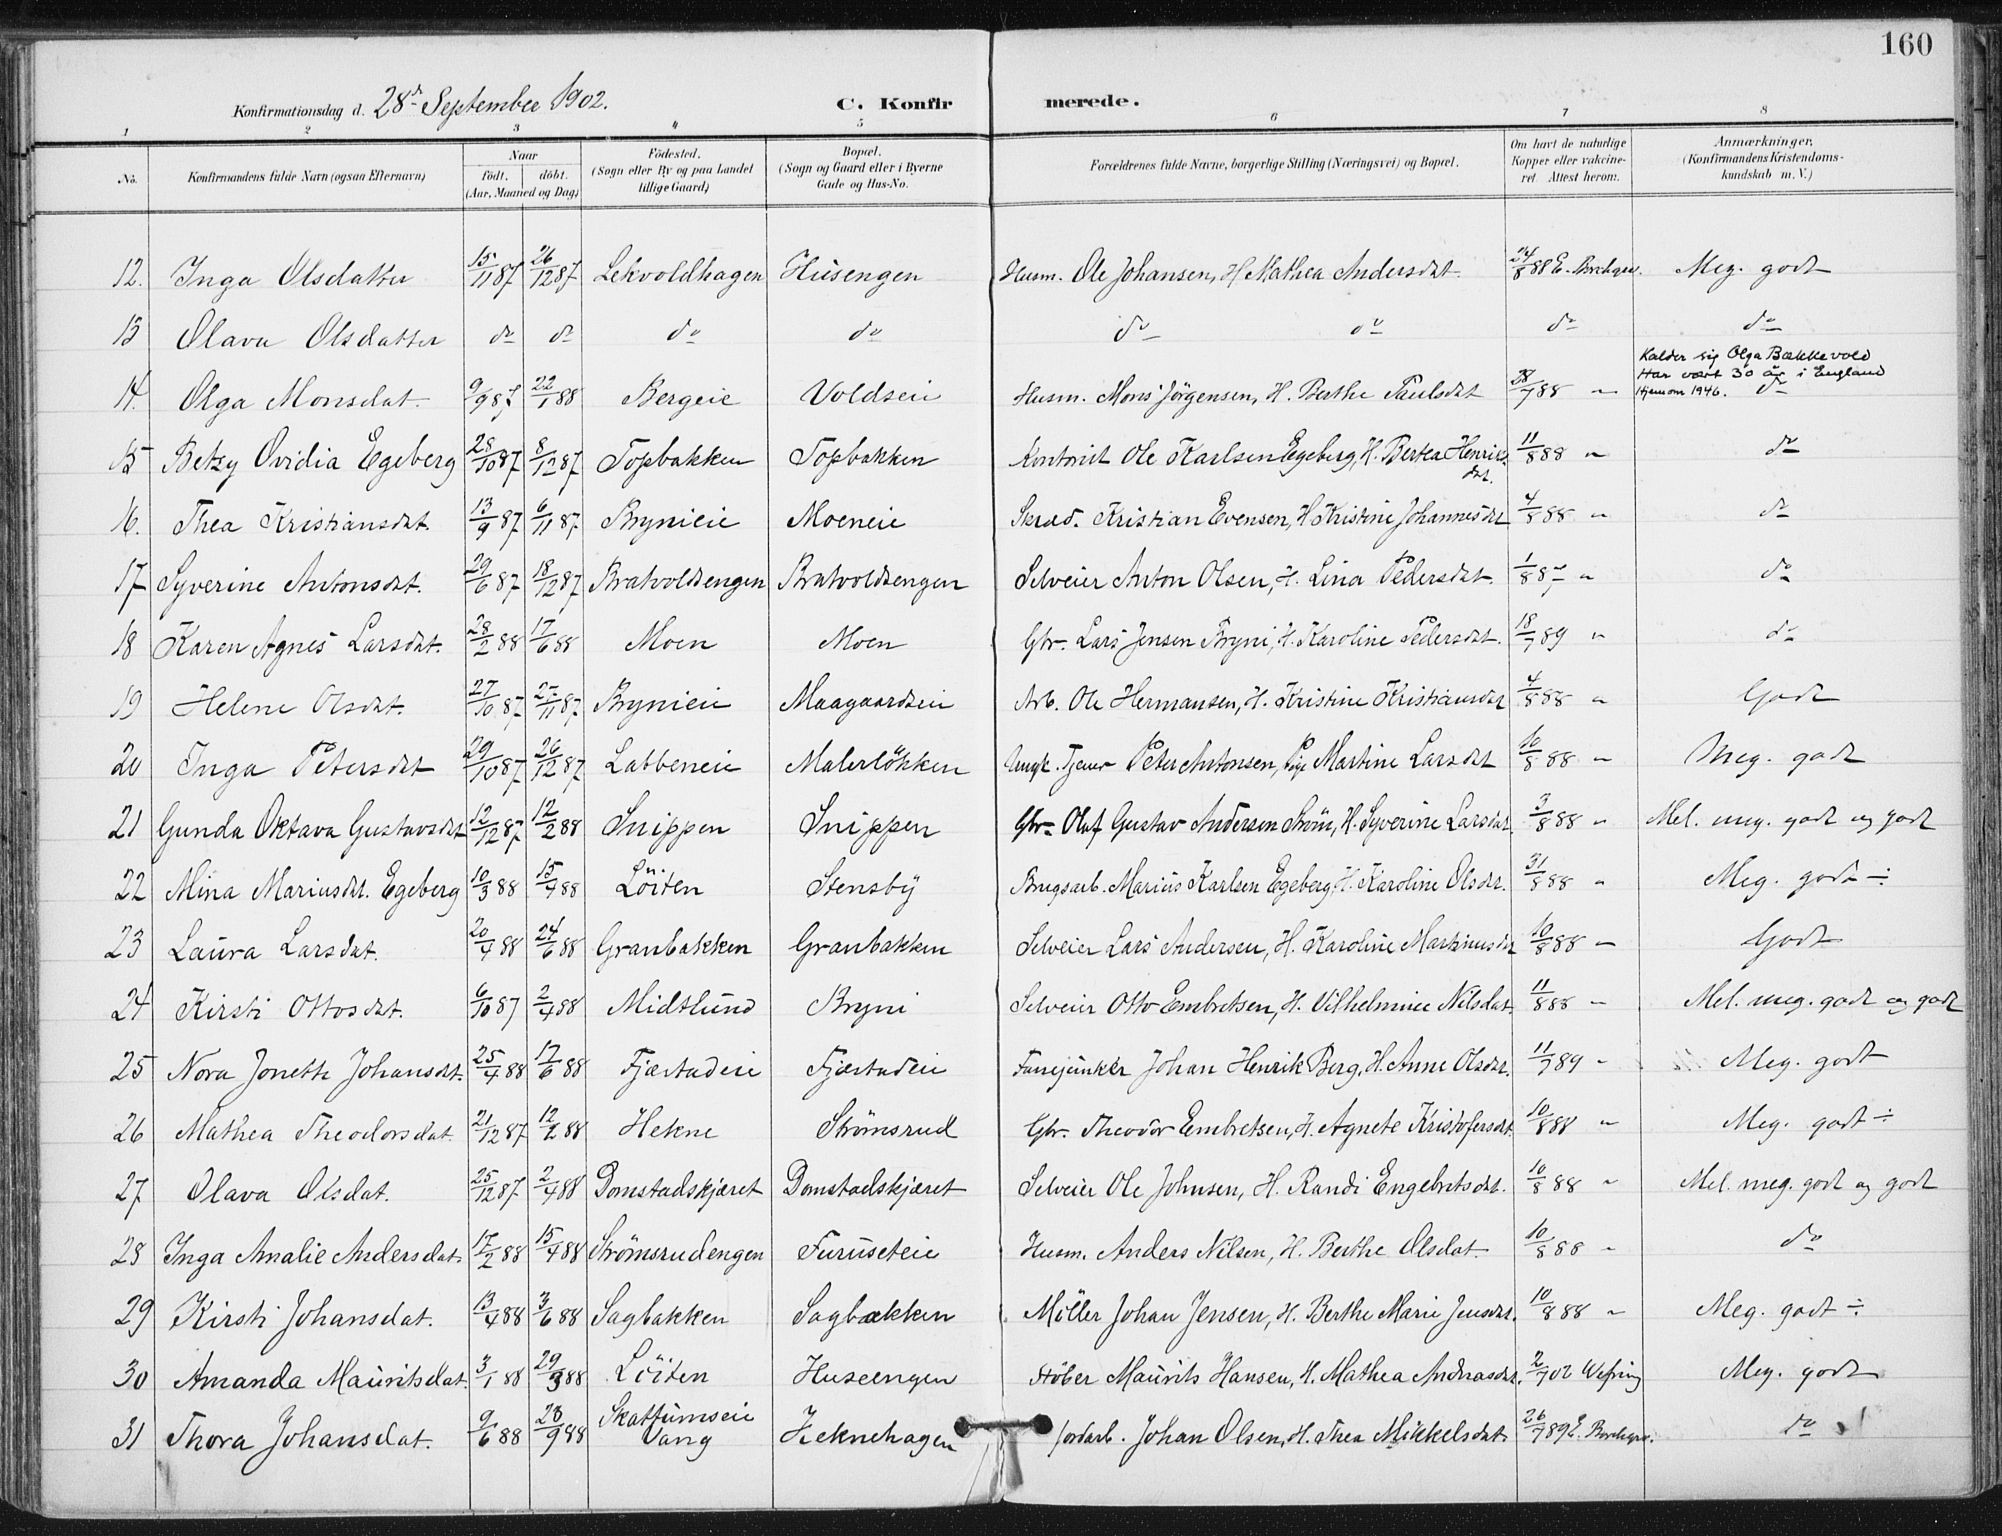 160
Konfirmationsdag d. 28de September 1902. C. Konfirmerede.
1 2 3 4 5 6 7 8
No. Konfirmandens fulde Navn (ogsaa Efternavn) Naar født. døbt. (Aar, Maaned og Dag) Födested. (Sogn eller By og paa Landet tillige Gaard) Bopæl. (Sogn og Gaard eller i Byerne Gade og Hus-No. Forældrenes fulde Navne, borgerlige Stilling (Næringsvei) og Bopæl. Om havt de naturlige Kopper eller vakcineret. Attest herom. Anmærkninger. (Konfirmandens Kristendomskundskab m. V.)
12. Inga Olsdatter 15/11 87 26/12 87 Lekvoldhagen Husengen Husm. Ole Johansen, H. Mathea Andersdat. 24/8 88 E. Borchgrev. Meg. godt
13 Olava Olsdatter do do do do do do do do
Kalder sig Olga Bækkevold
Har vært 30 år i England
Hjemom 1946.
14. Olga Monsdat. 9/9 87 22/1 88 Bergeie Voldseie Husm. Mons Jörgensen, H. Berthe Paulsdat 28/7 88 " do
15 Betzy Ovidia Egeberg 28/10 87 8/12 87 Topbakken Topbakken Kontorist Ole Karlsen Egeberg, H. Bertea Henriksdat. 11/8 88 " do
16. Thea Kristiansdat. 13/9 87 6/11 87 Brynieie Moeneie Skræd. Kristian Evensen, H. Kristine Johannesdat 4/8 88 " do
17 Syverine Antonsdat. 29/6 87 18/12 87 Bratvoldsengen Bratvoldsengen Selveier Anton Olsen, H. Lina Pedersdat. 1/8 87 " do
18 Karen Agnes Larsdat. 28/2 88 17/6 88 Moen Moen Gbr. Lars Jensen Bryni, H. Karoline Pedersdat. 18/7 89 " do
19 Helene Olsdat. 27/10 87 27/11 87 Brynieie Maagaardseie Arb. Ole Hermansen, H. Kristine Kristiansdat 4/8 88 " Godt
20 Inga Petersdat 29/10 87 26/12 87 Labbeneie Malerlökken Ungk. Tjener Peter Antonsen, Pige Martine Larsdat 10/8 88 " Meg. godt
21 Gunda Oktava Gustavsdat 12/12 87 12/2 88 Snippen Snippen Gbr. Olaf Gustav Andersen Ström, H. Syverine Larsdat. 3/8 88 " Mel. meg. godt og godt
22 Mina Mariusdat. Egeberg 10/3 88 15/4 88 Löiten Stensby Brugsarb. Marius Karlsen Egeberg, H. Karoline Olsdat. 31/8 88 " Meg. godt ÷
23 Laura Larsdat. 20/4 88 24/6 88 Granbakken Granbakken Selveier Lars Andersen, H. Karoline Martinusdat 10/8 88 " Godt
24 Kirsti Ottosdat. 6/10 87 2/4 88 Midtlund Bryni Selveier Otto Embretsen, H. Vilhelmine Nilsdat. 11/8 88 " Mel. meg. godt og godt
25 Nora Jonette Johansdat. 25/4 88 17/6 88 Fjæstadeie Fjæstadeie Fanejunker Johan Henrik Berg, H. Anne Olsdat. 11/7 89 " Meg. godt
26 Mathea Theodorsdat 21/12 87 12/2 88 Hekne Strömsrud Gbr. Theodor Embretsen, H. Agnete Kristofersdat. 10/8 88 " Meg. godt ÷
27 Olava Olsdat. 25/12 87 2/4 88 Domstadskjæret Domstadskjæret Selveier Ole Johnsen, H. Randi Engebretsdat. 10/8 88 " Mel. meg. godt og godt
28 Inga Amalie Andersdat. 17/2 88 15/4 88 Strömsrudengen Furuseteie Husm. Anders Nilsen, H. Berthe Olsdat. 10/8 88 " do
29 Kirsti Johansdat. 13/4 88 3/6 88 Sagbakken Sagbakken Möller Johan Jensen, H. Berthe Marie Jensdat. 10/8 88 " Meg. godt ÷
30 Amanda Mauritsdat. 3/1 88 29/3 88 Löiten Huseengen Støber Maurits Hansen, H. Mathea Andreasdat. 2/7 02 Meg. godt
31 Thora Johansdat. 9/6 88 28/9 88 Skattumseie Vang Heknehagen Jordarb. Johan Olsen, H. Thea Mikkelsdat. 26/7 89 E. Borchgrev. do